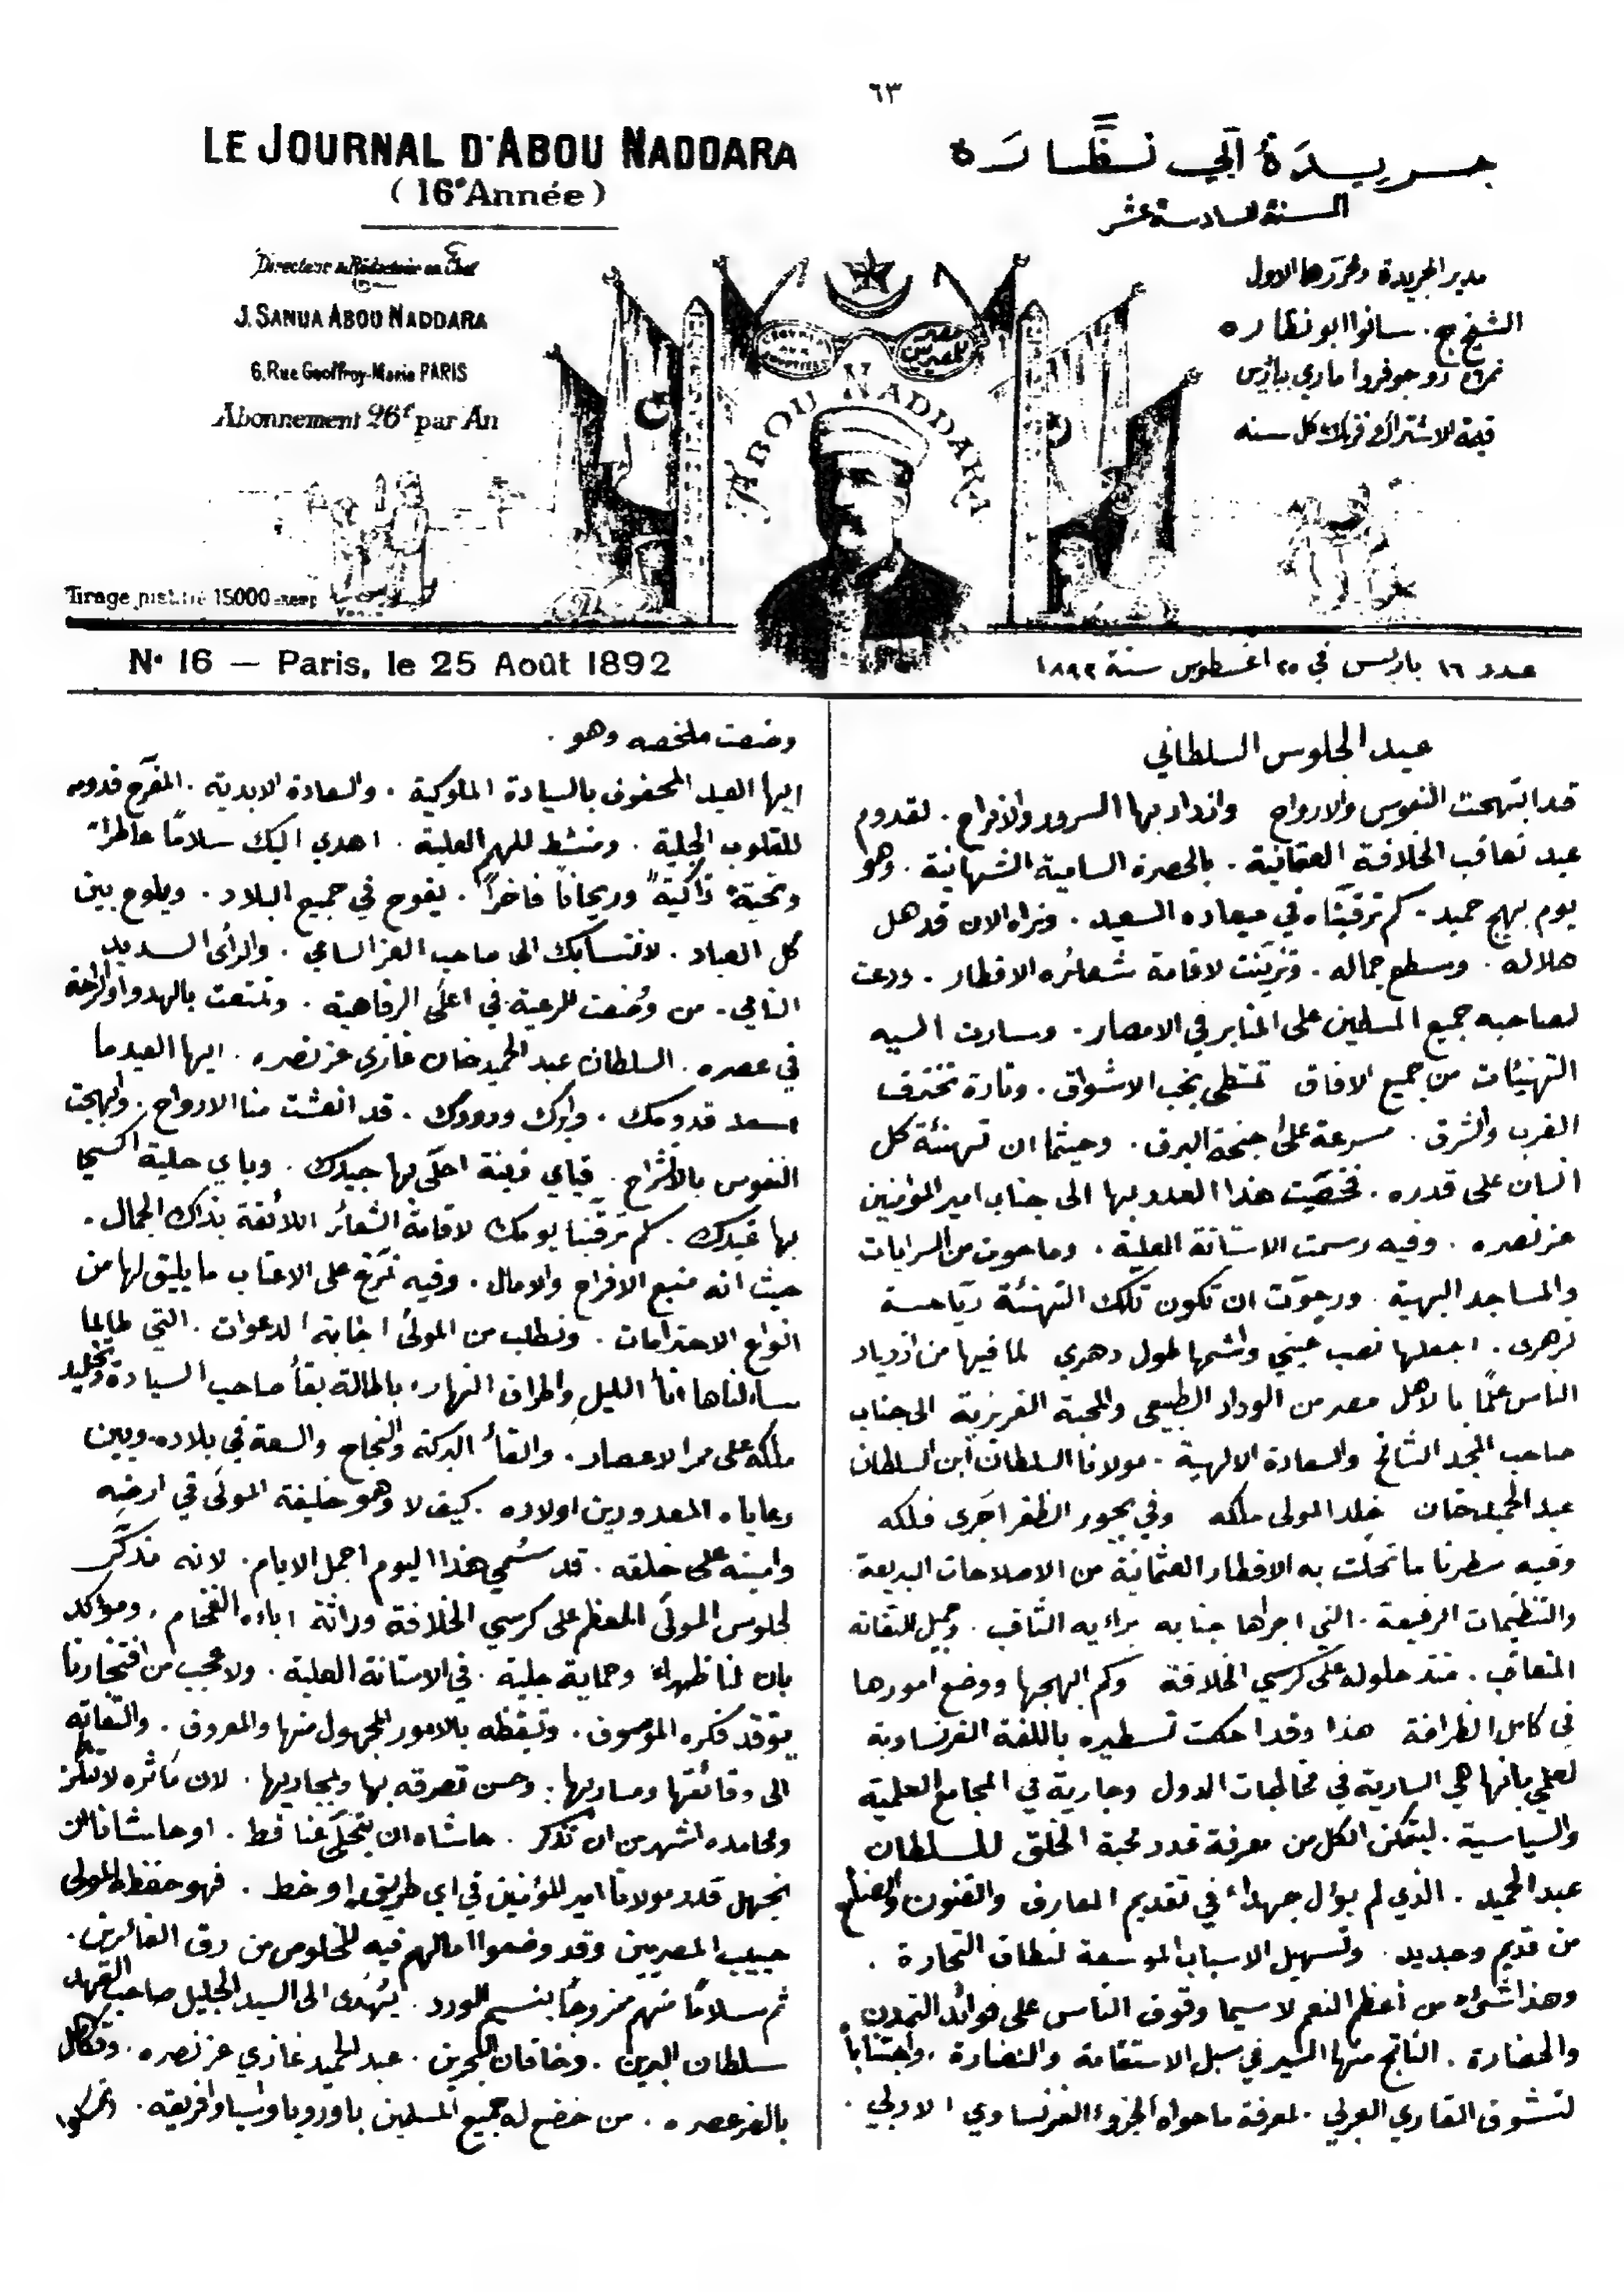 ٦٣
LE JOURNAL D'ABOU NADDARA
(16e Année)
Directeur & Rédacteur en Chef
J. SANUA ABOU NADDARA
6, Rue Geoffroy-Marie PARIS
Abonnement 26f par An
جريدة أبي نظارة
السنة السادسة عشر
مدير الجريدة ومحررها الاول
الشيخ ج. سانوا ابو نظاره
نمرة ٦ رو جوفروا ماري بباريس
قيمة الاشتراك فرنك كل سنه
ABOU NADDARA
Tirage 15000
Nº 16 — Paris, le 25 Août 1892
عدد ١٦ باريس في ٢٥ اغسطوس سنة ١٨٩٢
عيد الجلوس السلطاني
قد ابتهجت النفوس والارواح وازداد بها السرور والافراح. لقدوم
عيد تعاقب الخلافة العثمانية. بالحضرة السامية الشهانية. وهو
يوم بهج حميد. كم ترقبناه في ميعاده السعيد. ونراه الان قد هل
هلاله. وسطع جماله. وتزينت لاقامة شعائره الاقطار. ودعت
لصاحبه جميع المسلمين على المنابر في الامصار. وسارت اليه
التهنئات من جميع الافاق تمتطي نجب الاشواق. وتارة تخترق
الغرب والشرق. مسرعة على اجنحة البرق. وحيثما ان تهنئة كل
انسان على قدره. فخصيت هذا العدد بها الى جناب امير المؤمنين
عز نصره. وفيه رسمت الاستانة العلية. وما حوت من السرايات
والمساجد البهية. ورجوت ان تكون تلك التهنئة رياحينه
تزهرى. اجعلها نصب عيني واشمها طول دهري لما فيها من ازدياد
الناس علما بالاهل مصر من الوداد الطبيعي والمحبة الغريزية الى جناب
صاحب المجد الشامخ والسعادة الالهية. مولانا السلطان ابن السلطان
عبد الحميد خان خلد المولى ملكه وفي بحور الظفر اجرى فلكه
وفيه سطرنا ما تحلت به الاقطار العثمانية من الاصلاحات البديعة
والتنظيمات الرفيعة. التي اجراها جنابه برايه الثاقب. وجميل التفاته
المتعاقب. منذ حلوله على كرسي الخلافة وكم ابهجها ووضع امورها
في كامل الظرافة هذا وقد احكمت تسطيره باللغة الفرنساوية
لعلمي بانها هي السارية في مخاطبات الدول وجارية في المجامع العلمية
والسياسية. ليتمكن الكل من معرفة قدر محبة الخلق للسلطان
عبد الحميد. الذي لم يؤل جهداً في تقديم المعارف والفنون والصنايع
من قديم وجديد. وتسهيل الاسباب الموسعة لنطاق التجارة.
وهذا شئ من أعظم النعم لا سيما وقوف الناس على فوائد التمدن
والحضارة. الناتج منها السير في سبل الاستقامة والنضارة. واجتناباً
لتشوق القاري العربي. لمعرفة ما حواه الجزو الفرنساوي الادبي.
وضعت ملخصه وهو.
ايها العيد المحفوف بالسيادة الملوكية. والسعادة الابدية. المفرح قدومه
للقلوب الجلية. ومنشط للهمم العلية. اهدي اليك سلامًا عاطراً
وتحية ذاكية وريحاناً فاخراً. يفوح في جميع البلاد. ويلوح بين
كل العباد. لانتسابك الى صاحب العز السامي. والرأى السديد
النامي. من وضعت للرعية في اعلى الرفاهية. وتمتعت بالهدو والراحة
في عصره. السلطان عبد الحميد خان غازى عز نصره. ايها العيد ما
اسعد قدومك. وابرك ورودك. قد انعشت منا الارواح. وابهجت
النفوس بالانشراح. فباي زينة احلى بها جيدك. وباي حلية اكسي
بها غيدك. كم ترقبنا يومك لاقامة الشعائر اللائقة بذاك الجمال.
حيث انه منبع الافراح والامال. وفيه نمرغ على الاعتاب ما يليق لها من
انواع الاحترامات. ونطلب من المولى اجابة الدعوات. التي طالما
سألناها انأ الليل واطراف النهار، باطالة بقأ صاحب السيادة وتخليد
ملكه على ممر الاعصار. والقأ البركة والنجاح والسعة في بلاده. وبين
رعاياه المعدودين اولاده. كيف لا وهو خليفة المولى في ارضه
وامينه على خلقه. قد سُمي هذا اليوم اجمل الايام. لانه مذكر
لجلوس المولى المعظم على كرسي الخلافة وراثة اباءه الفخام. ومؤكد
بان لنا ظهراً وحماية جلية. في الاستانة العلية. ولا عجب من افتخارنا
بتوقد فكره الموصوف. وتيقظه بالامور المجهول منها والمعروف. والتفاته
الى دقائقها ومساربها. وحسن تصرفه بها ومجاريها. لان مآثره لا تنكر
ومحامده اشهر من ان تذكر. حاشاه ان يتخلى عنا قط. او حاشانا ان
نجهل قدر مولانا امير المؤمنين في اي طريق او خط. فهو حفظه المولى
حبيب المصريين وقد وضعوا امالهم فيه للخلوص من رق الغائرين.
ثم سلاماً منهم ممزوجاً بنسيم الورد. يُهدى الى السيد الجليل صاحب العهد
سلطان البرين. وخاقان البحرين. عبد الحميد غازي عز نصره. وتكامل
بالفز عصره. من خضع له جميع المسلمين باوروبا واسيا وافريقه.